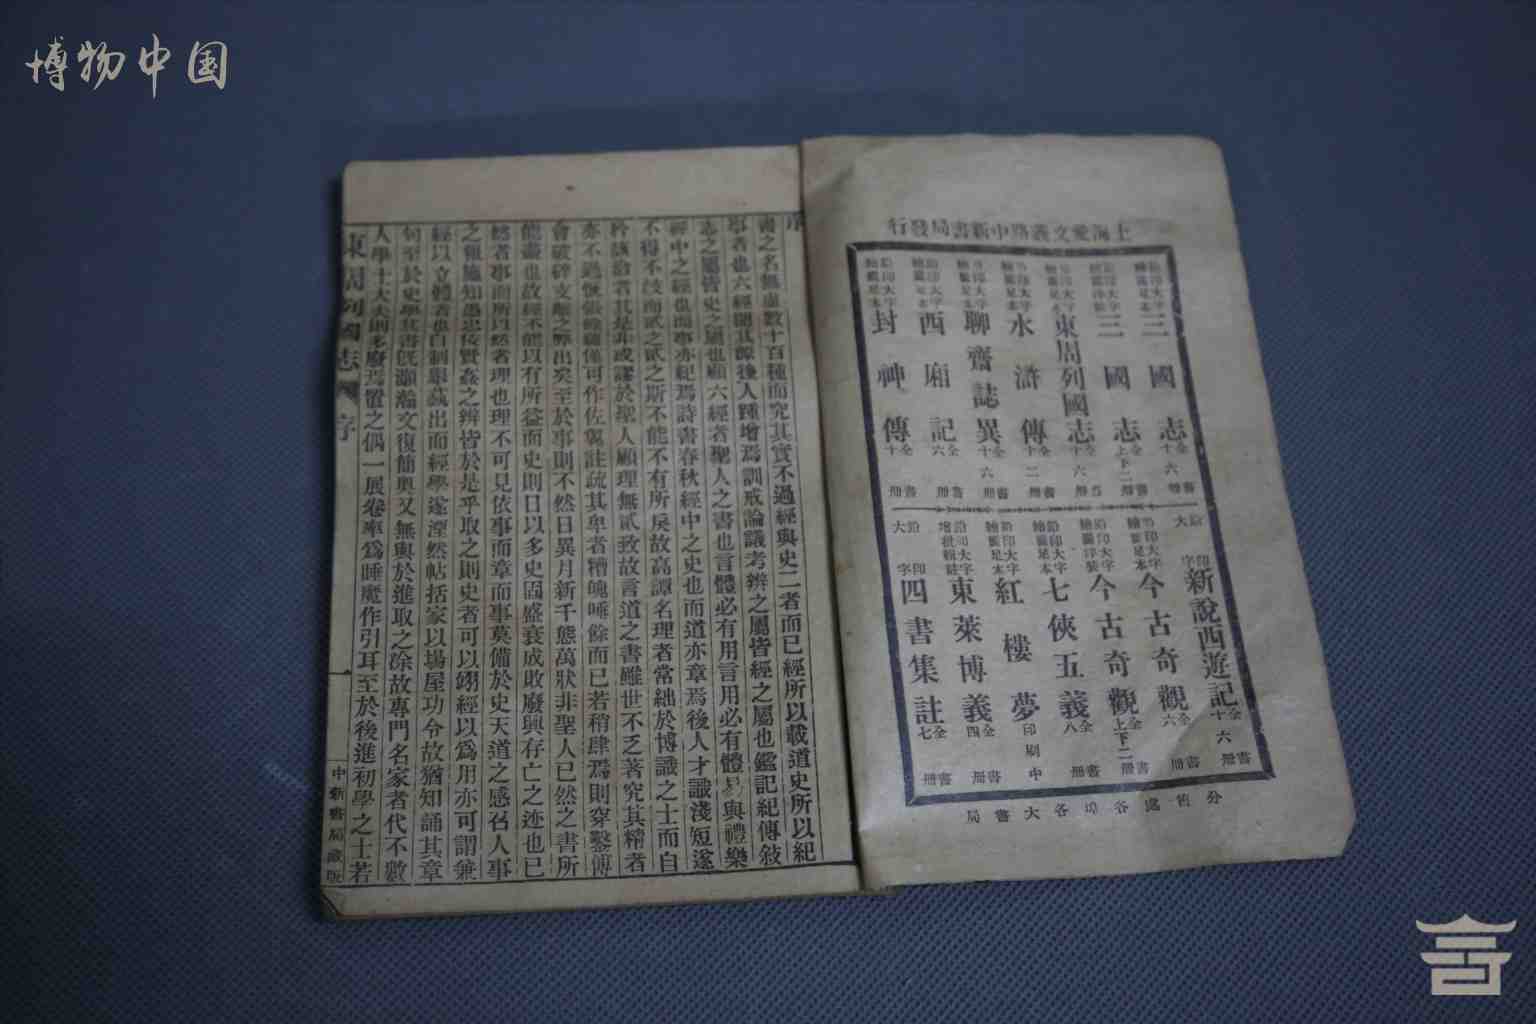 博物中国
上海愛文義路中新書局發行
鉛印大字繪圖足本三國志全書十六冊
鉛印大字繪圖洋裝三國志全書上下二冊
鉛印大字繪圖足本東周列國志全書十六冊
鉛印大字繪圖足本水滸傳全書十二冊
鉛印大字繪圖足本聊齋誌異全書十六冊
鉛印大字繪圖足本西廂記全書六冊
鉛印大字繪圖足本封神傳全書十冊
鉛印大字新說西遊記全書十六冊
鉛印大字繪圖足本今古奇觀全書六冊
鉛印大字繪圖洋裝今古奇觀全書上下二冊
鉛印大字繪圖足本七俠五義全書八冊
鉛印大字繪圖足本紅樓夢印刷中
鉛印大字增批輯註東萊博義全書四冊
鉛印大字四書集註全書七冊
分售處各埠各大書局
序
書之名無慮數十百種而究其實不過經與史二者而已經所以載道史所以紀
事者也六經開其源後人踵增焉訓戒論議考辨之屬皆經之屬也鑑記紀傳敍
志之屬皆史之屬也顧六經者聖人之書也言體必有用言用必有體易與禮樂
經中之經也而事亦紀焉詩書春秋經中之史也而道亦章焉後人才識淺短遂
不得不歧而貳之貳之斯不能不有所戾故高譚名理者常絀於博識之士而自
矜該洽者其是非或謬於聖人顧理無貳致故言道之書雖世不乏著究其精者
亦不過恢張餘緒僅可作佐翼註疏其卑者糟魄唾餘而已若稍肆焉則穿鑿傅
會破碎支離之弊出矣至於事則不然日異月新千態萬狀非聖人已然之書所
能盡也故經不能以有所益而史則日以多史固盛衰成敗廢興存亡之迹也已
然者事而所以然者理也理不可見依事而章而事莫備於史天道之感召人事
之報施知愚忠佞賢姦之辨皆於是乎取之則史者可以翊經以為用亦可謂兼
經以立體者也自制舉藝出而經學遂湮然帖括家以場屋功令故猶知誦其章
句至於史學其書既灝瀚文復簡奧又無與於進取之塗故專門名家者代不數
人學士大夫則多廢焉置之偶一展卷率為睡魔作引耳至於後進初學之士若
東周列國志 序 一 中新書局藏版